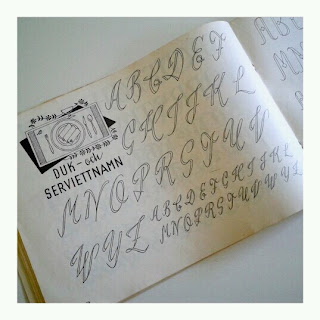 DUK- och
SERVIETTNAMN
A B C D E F
G H I J K L
M N O P R S T U V
W Y Z
A B C D E F G H I J K L
M N O P R S T U V W Y Z